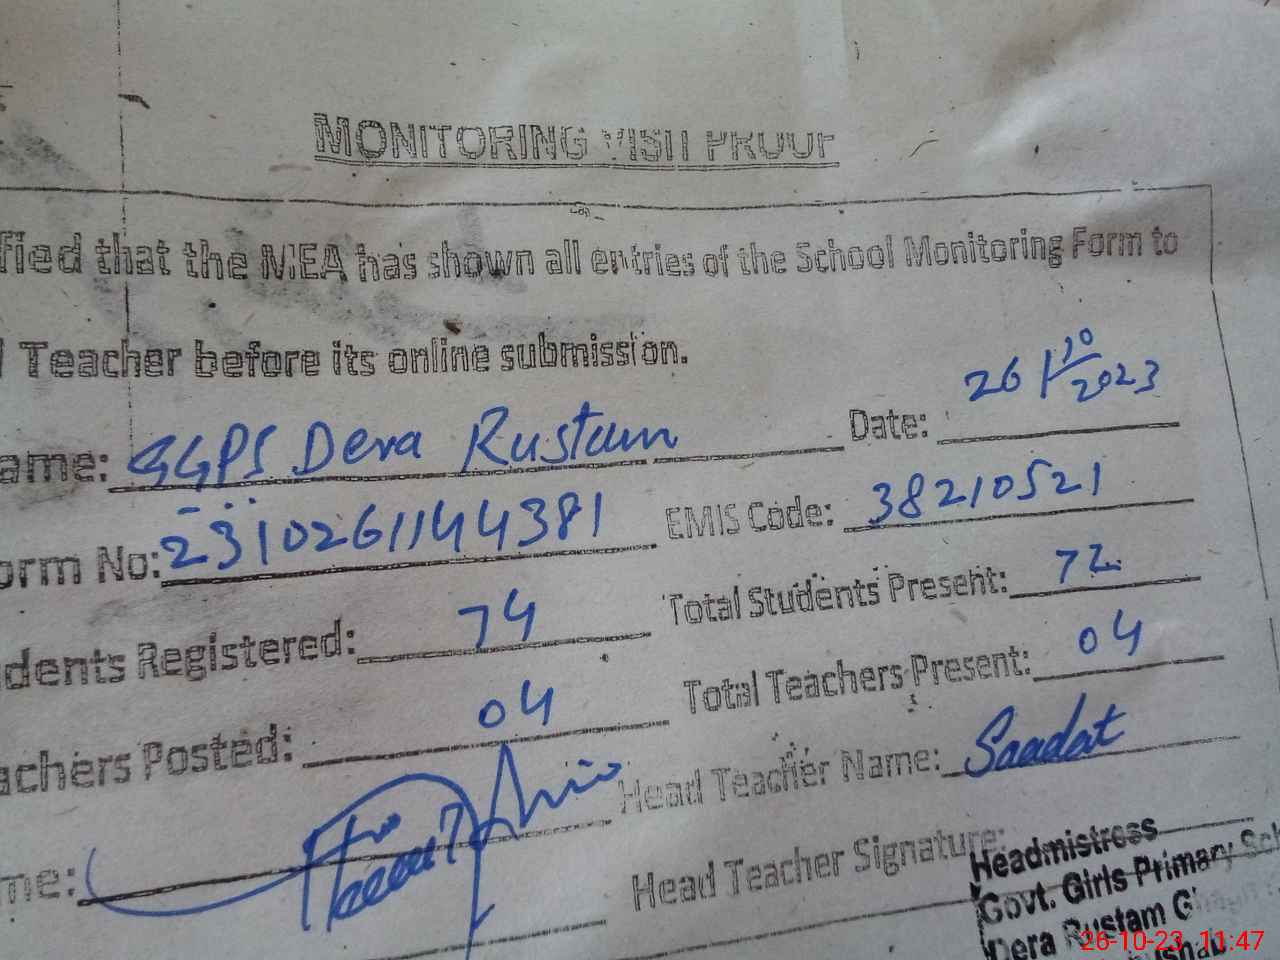 MONITORING VISIT PROOF
fied that the MEA has shown all entries of the School Monitoring Form to
Teacher before its online submission.
ame: GGPS Dera Rustam Date: 26/10/2023
orm No: 2310261144381 EMIS Code: 38210521
dents Registered: 74 Total Students Present: 72
achers Posted: 04 Total Teachers Present: 04
me: Head Teacher Name: Saadat
Head Teacher Signature:
Headmistress
Govt. Girls Primary Sch
Dera Rustam
26-10-23 11:47